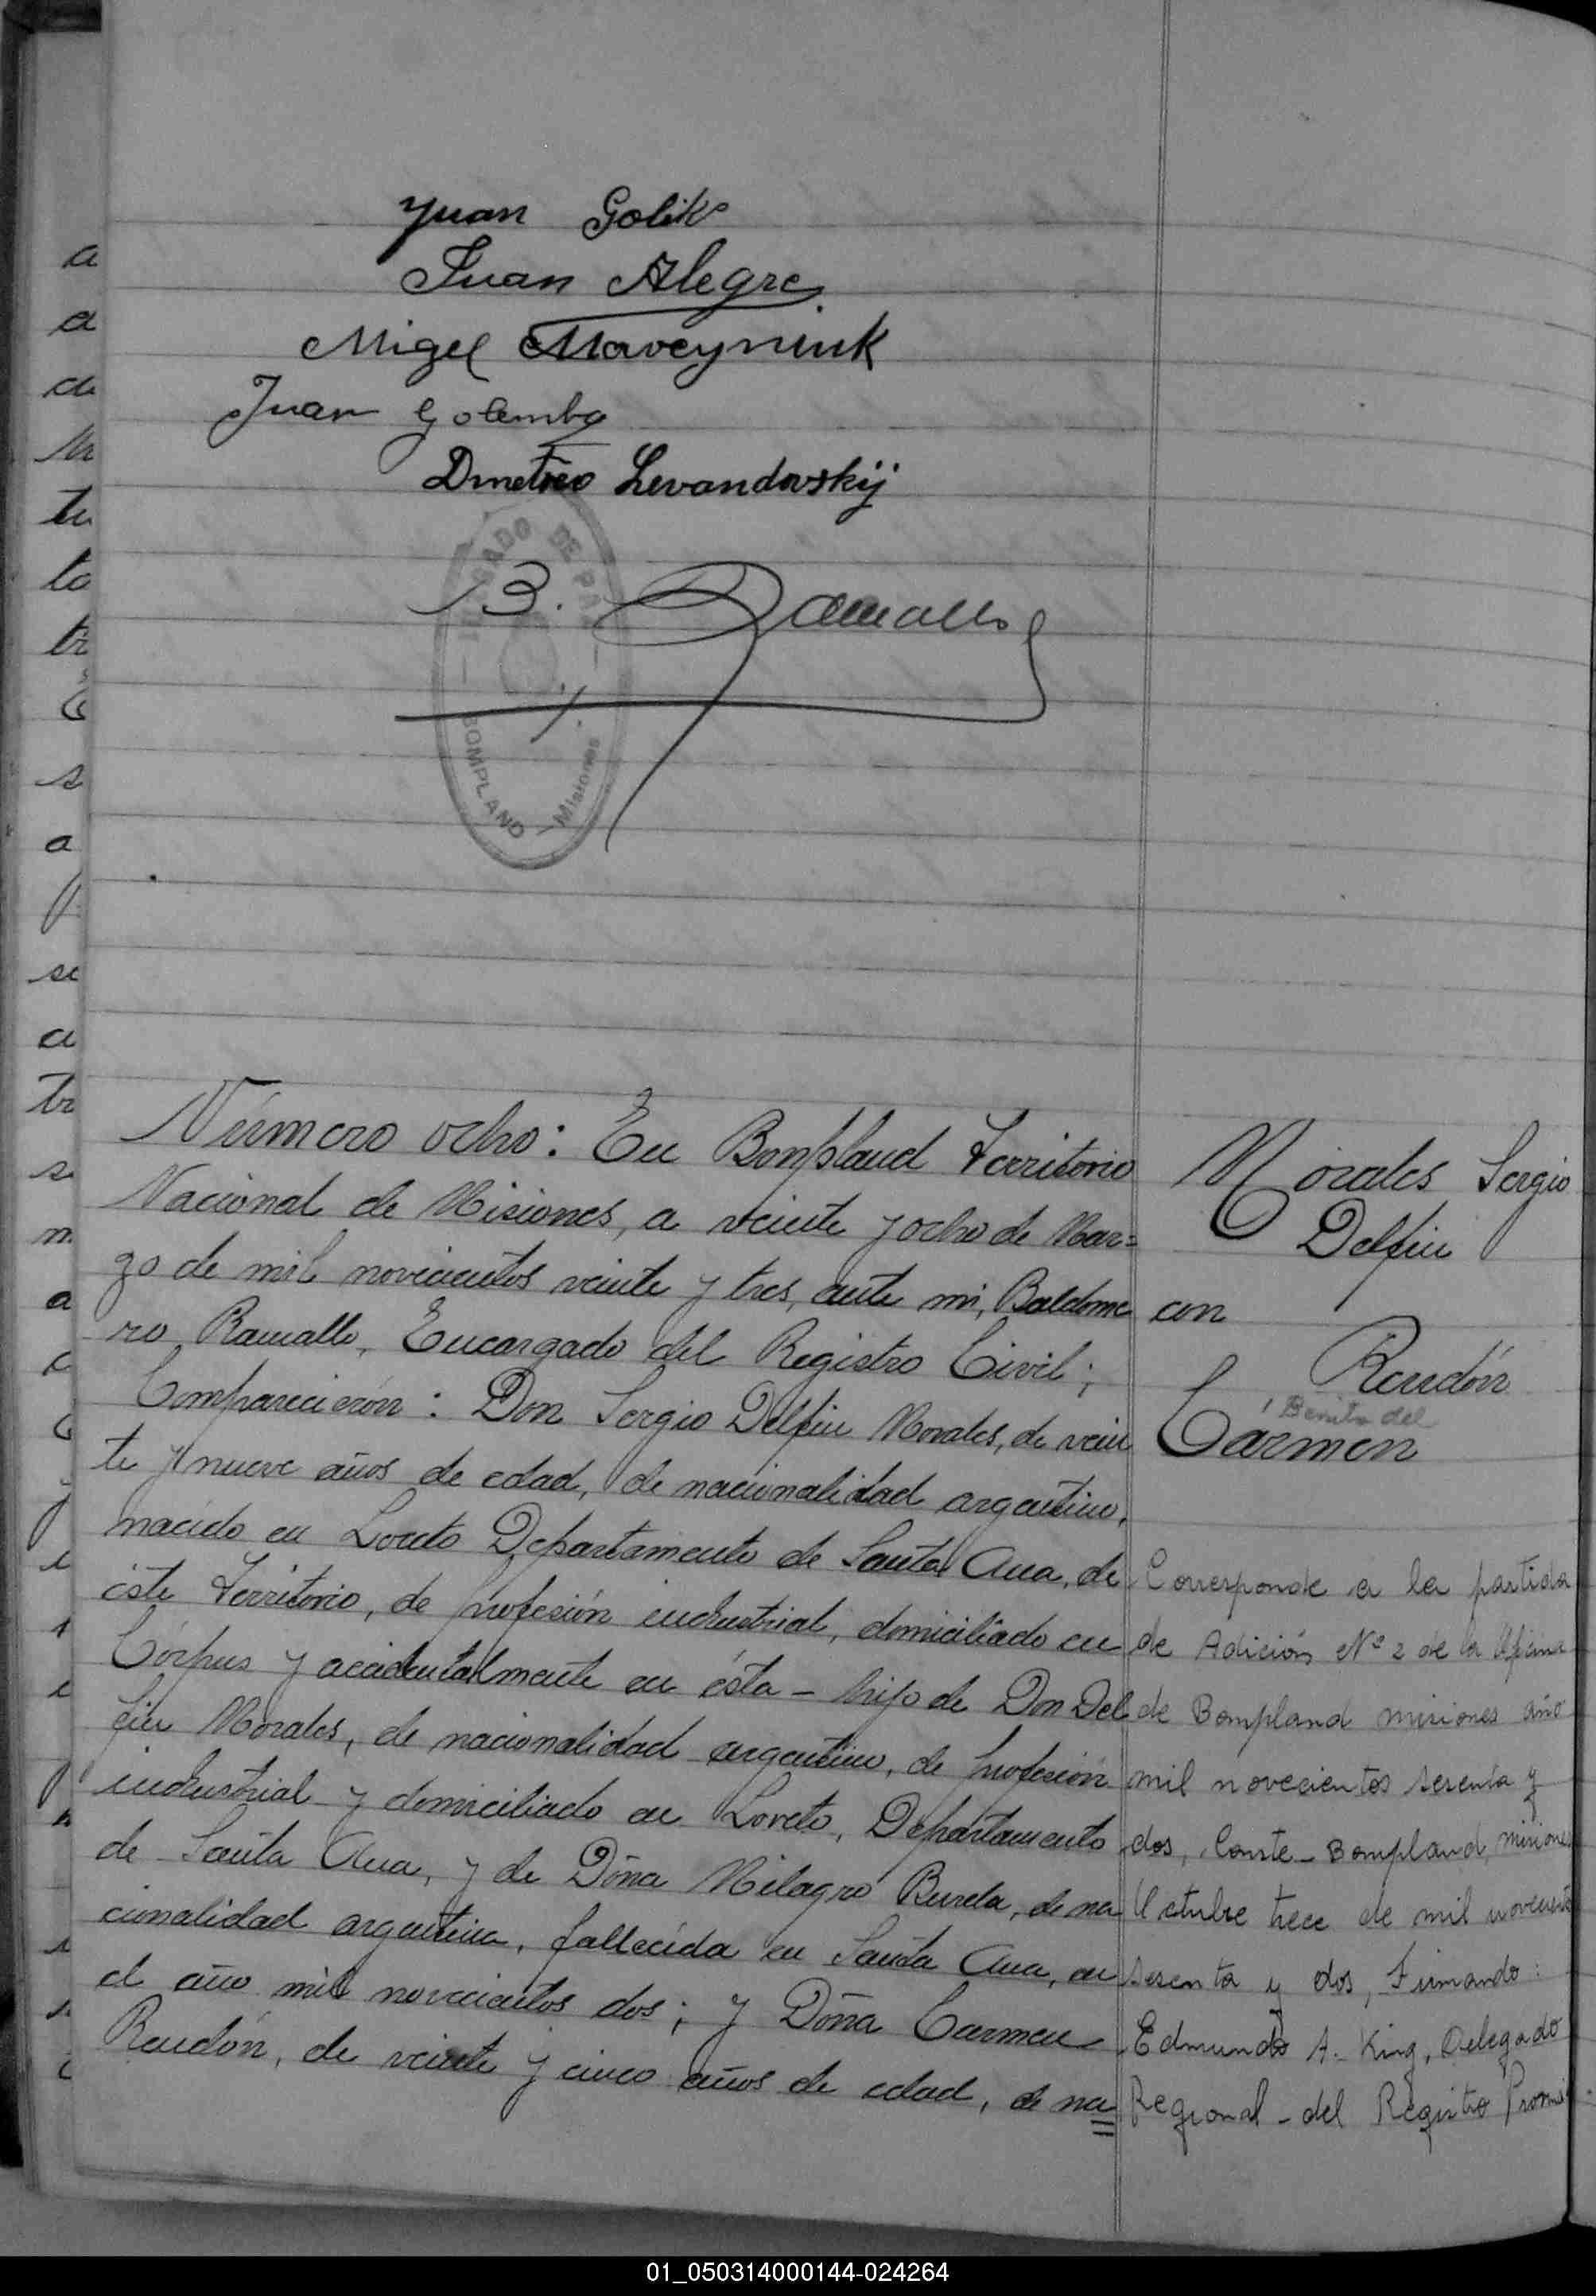 Juan Golik
Juan Alegre
Migel
Juan Golemba
Dmetreo Levandovskij
JUZGADO DE PAZ
B. Ramallo
BOMPLAND
Misiones
Número ocho: En Bompland Territorio
Nacional de Misiones, a veinte y ocho de Mar=
zo de mil novecientos veinte y tres, ante mi, Baldome
ro Ramallo, Encargado del Registro Civil;
Comparecieron: Don Sergio Delfin Morales, de vein
te y nueve años de edad, de nacionalidad argentino,
nacido en Loreto Departamento de Santa Ana, de
éste Territorio, de profesión industrial, domiciliado en
Córpus y accidentalmente en ésta - hijo de Don Del
fin Morales, de nacionalidad argentino, de profesión
industrial y domiciliado en Loreto, Departamento
de Santa Ana, y de Doña Milagro Burela, de na
cionalidad argentina, fallecida en Santa Ana, en
el año mil novecientos dos; y Doña Carmen
Rendón, de veinte y cinco años de edad, de na
Morales Sergio
Delfin
con
Rendón
Benita del
Carmen
Corresponde a la partida
de Adición Nº 2 de la Oficina
de Bompland misiones año
mil novecientos sesenta y
dos, Conste - Bompland, misiones
Octubre trece de mil novecientos
sesenta y dos, Firmando:
Edmundo A. King, Delegado
Regional - del Registro
01_050314000144-024264